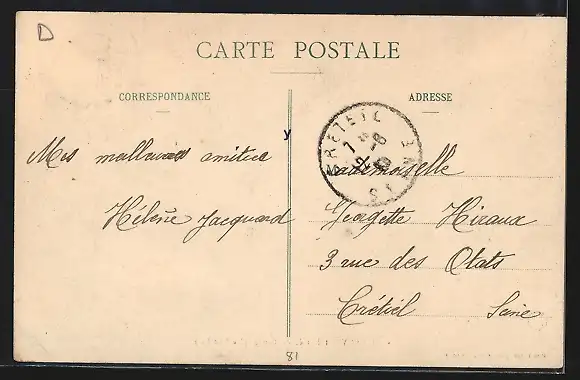 D
CARTE POSTALE
CORRESPONDANCE
ADRESSE
y
CRÉTEIL
SEINE
Mes meilleures amitiés
Hélène Jacquard
Mademoiselle
Georgette Hiraux
3 rue des Otats
Crétiel Seine
81